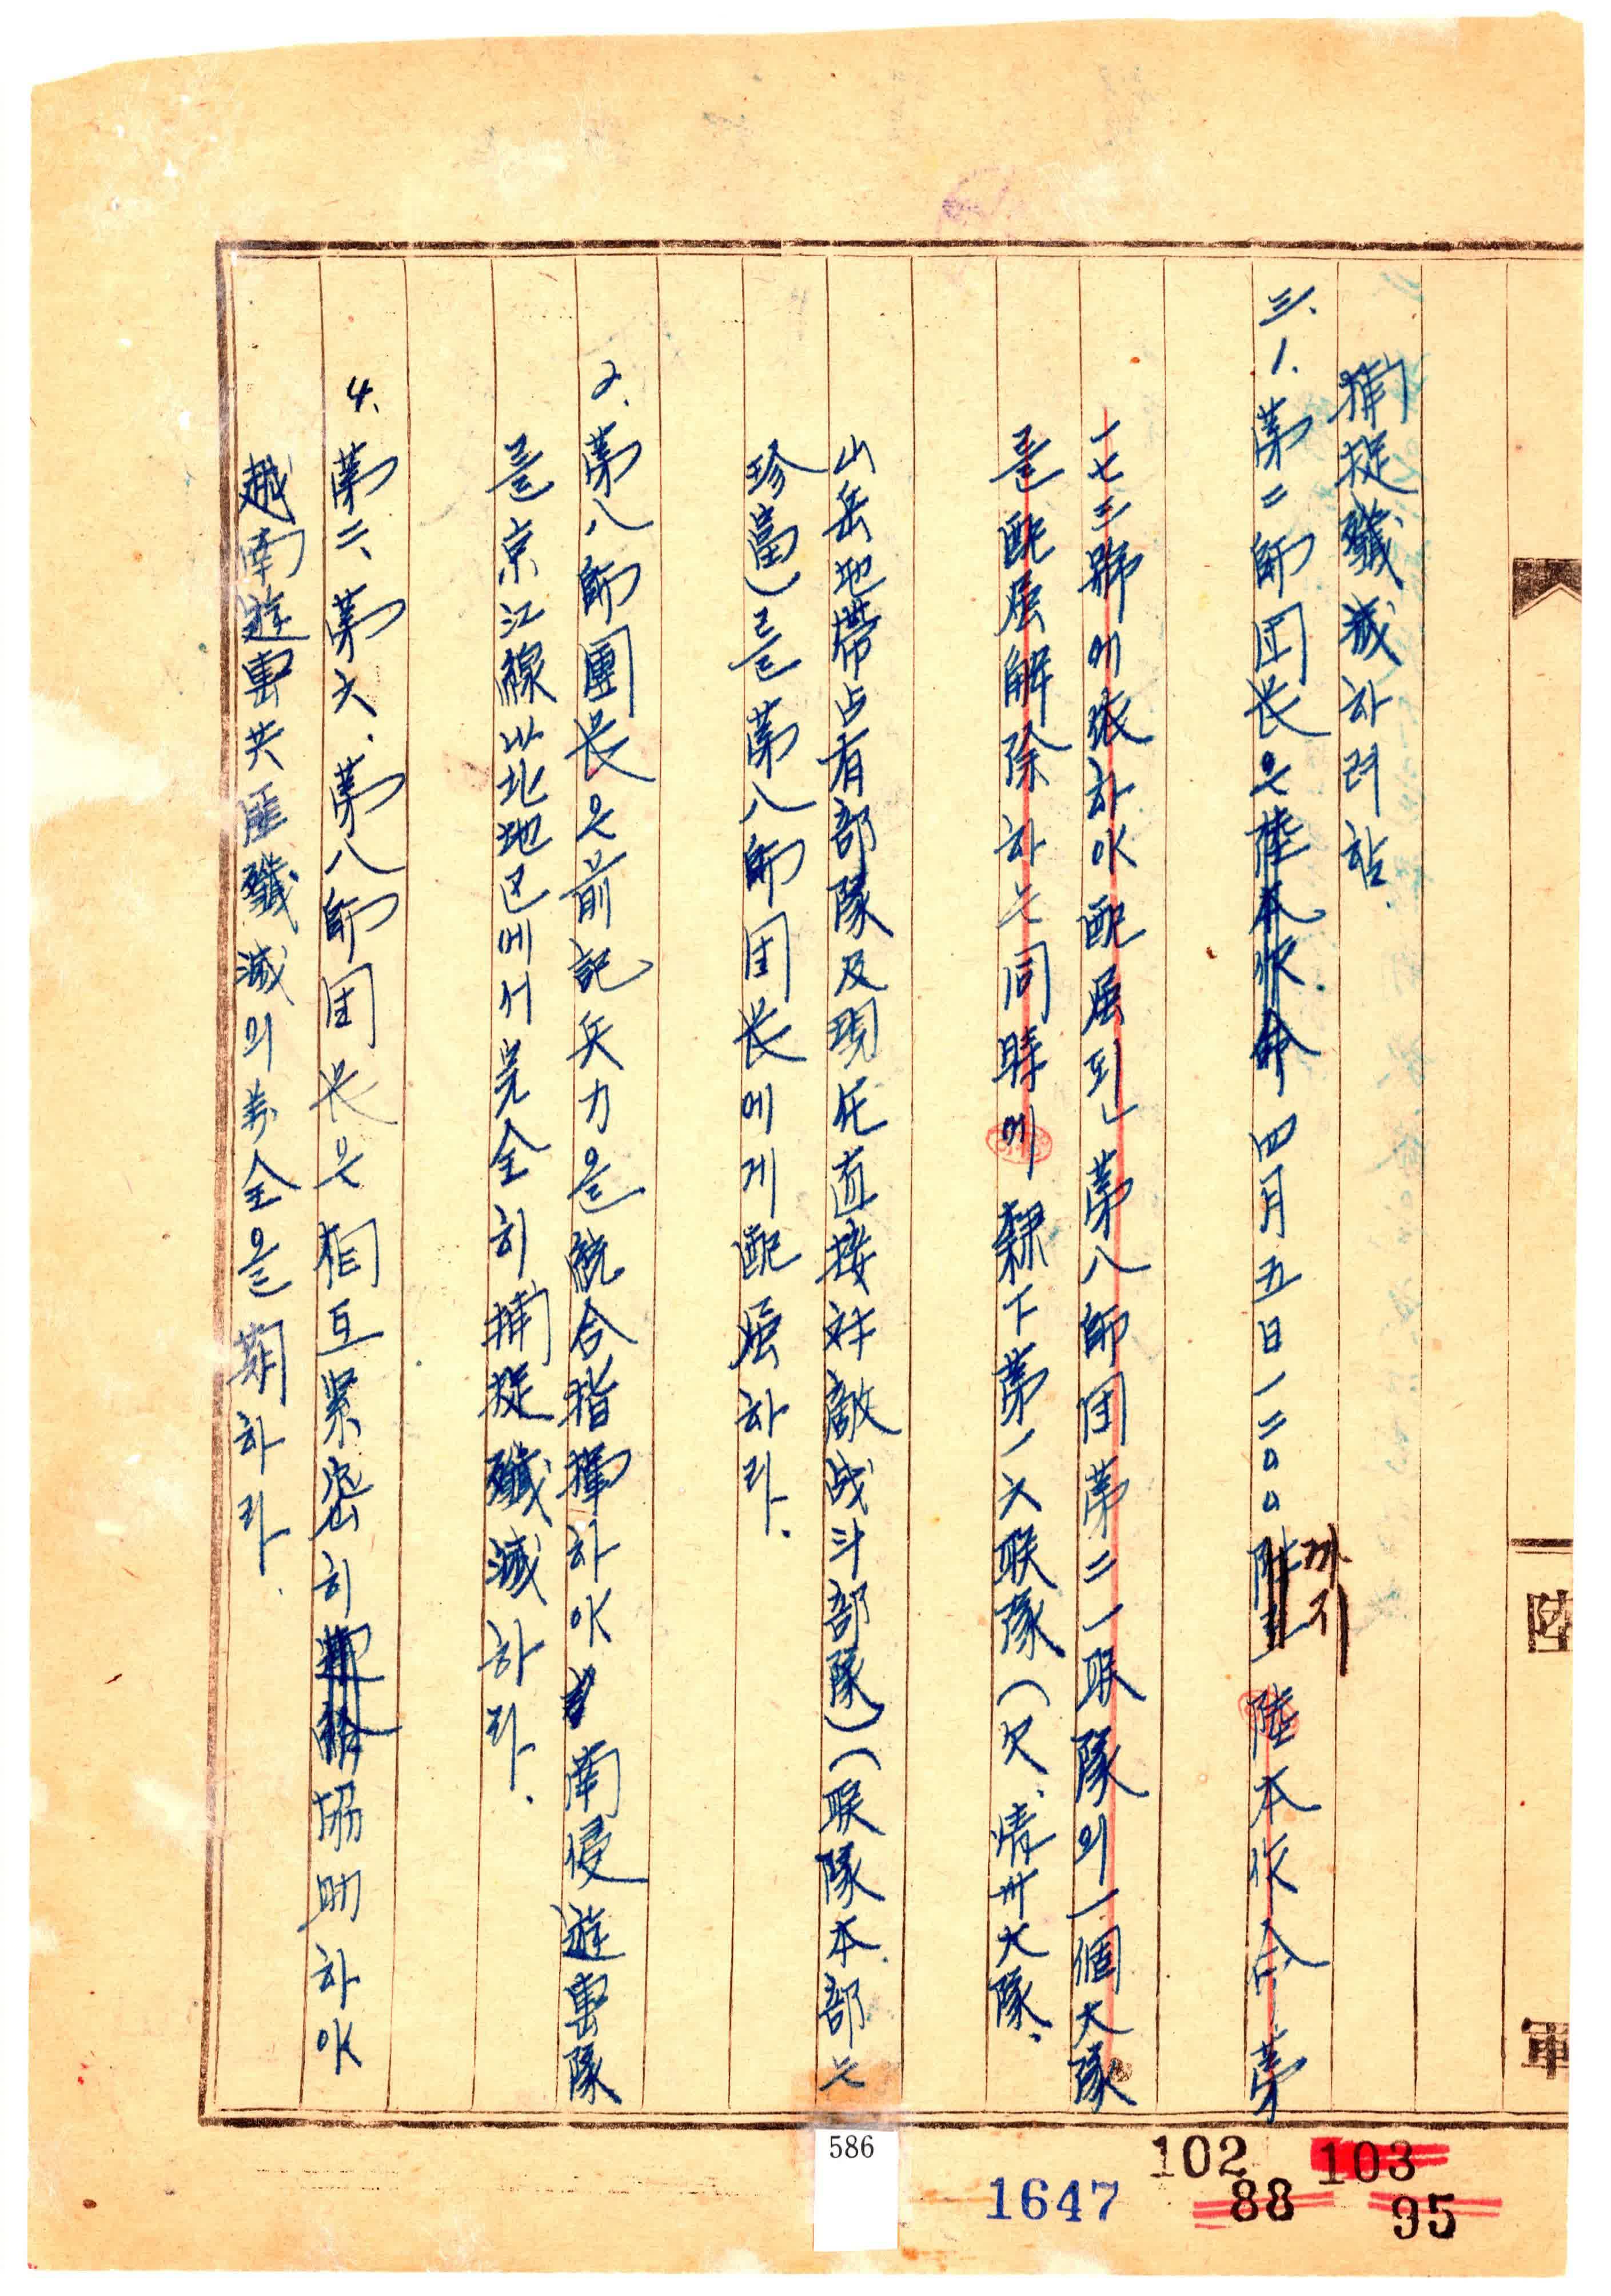 捕捉殲滅하려함.
三、1. 第二師团长은 陸本作命 四月五日一二〇〇 까지 陸本作合命 第
一七三號에 依하야 配屈된 第八師团 第二一联隊의 一個大隊
를 配屈解除하는 同時에 隷下 第一六联隊(欠、靑州大隊、
山岳地帶占有部隊及現在直接対敵战斗部隊)(联隊本部는
珍富)를 第八師团长에게 配屈하라.
2. 第八師團长은 前記兵力을 統合指揮하야 南侵遊擊隊
를 京江線以北地区에서 完全히 捕捉殲滅하라.
4. 第二、第六、第八師团长은 相互緊密히 協助하야
越南遊擊共匪殲滅의 萬全을 期하라.
陸
軍
586
1647
102
88
103
95